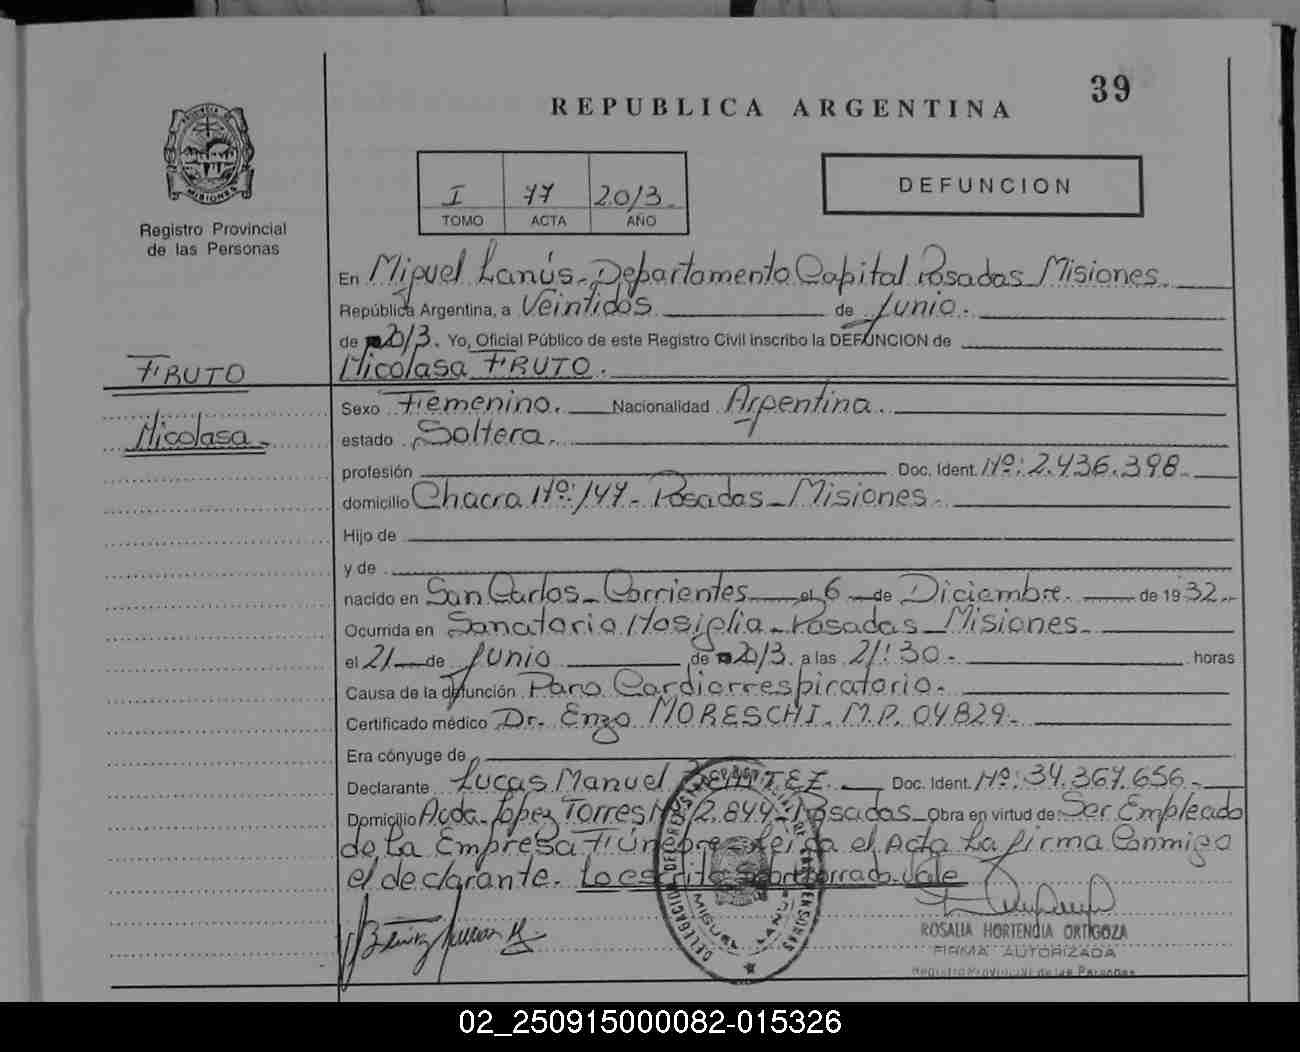 39
REPUBLICA ARGENTINA
PROVINCIA DE
MISIONES
Registro Provincial
de las Personas
I 77 2013.
TOMO ACTA AÑO
DEFUNCION
En Miguel Lanús. Departamento Capital Posadas Misiones.
República Argentina, a Veintidos de Junio.
de 2013. Yo, Oficial Público de este Registro Civil inscribo la DEFUNCION de
Nicolasa FRUTO.
FRUTO
Nicolasa.
Sexo Femenino. Nacionalidad Argentina.
estado Soltera.
profesión Doc. Ident. Nº: 2.436.398.
domicilio Chacra Nº: 147- Posadas - Misiones.
Hijo de
y de
nacido en San Carlos - Corrientes el 6 de Diciembre. de 1932.
Ocurrida en Sanatorio Posadas - Misiones.
el 21 de Junio de 2013. a las 21:30. horas
Causa de la defunción Paro Cardiorrespiratorio.
Certificado médico Dr. Enzo MORESCHI. M.P. 04829.
Era cónyuge de
Declarante Lucas Manuel BENITEZ. Doc. Ident. Nº: 34.367.656.
Domicilio Avda. López Torres Nº 2.844- Posadas - Obra en virtud de: Ser Empleado
de la Empresa Fúnebre - Leida el Acta la firma Conmigo
el declarante. Lo escrito sobreborrado. Vale
Benitez Lucas M
DELEGACION DEL REGISTRO PROVINCIAL DE LAS PERSONAS
MIGUEL LANUS
ROSALIA HORTENCIA ORTIGOZA
FIRMA AUTORIZADA
Registro Provincial de las Personas
02_250915000082-015326